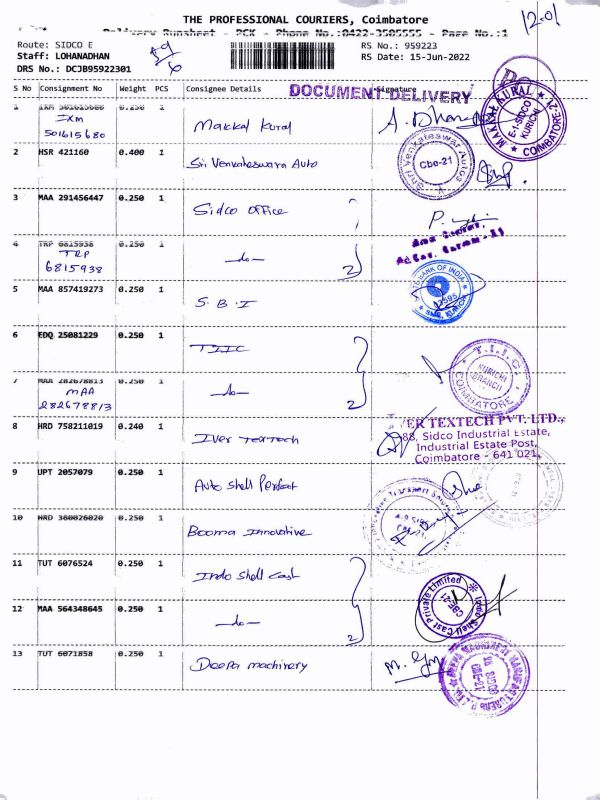 THE PROFESSIONAL COURIERS, Coimbatore
Delivery Runsheet - PCK - Phone No.:0422-3505555 - Page No.:1
12-01
Route: SIDCO E
RS No.: 959223
Staff: LOHANADHAN
RS Date: 15-Jun-2022
DRS No.: DCJB95922301
S No Consignment No Weight PCS Consignee Details Signature
DOCUMENT DELIVERY
1 IXM 501615680 0.250 1
IXM
501615680
Makkal Kural
MAKKAL KURAL
E-1-SIDCO
KURICHI
COIMBATORE-21
2 HSR 421160 0.400 1
Sri Venkateswara Auto
Shri Venkateswar Autos
Cbe-21
3 MAA 291456447 0.250 1
Sidco office
4 TRP 6815938 0.250 1
TRP
6815938
-do-
2
5 MAA 857419273 0.250 1
S.B.I
STATE BANK OF INDIA
SME, KURICHI
6 EDQ 25081229 0.250 1
TIIC
T.I.I.C
KURICHI
BRANCH
COIMBATORE
7 MAA 282678813 0.250 1
MAA
282678813
-do-
2
8 HRD 758211019 0.240 1
Iver Textech
VER TEXTECH PVT. LTD.,
88, Sidco Industrial Estate,
Industrial Estate Post,
Coimbatore - 641 021.
9 UPT 2057079 0.250 1
Auto Shell Perfect
10 HRD 360026020 0.250 1
Booma Innovative
11 TUT 6076524 0.250 1
Indo Shell Cast
12 MAA 564348645 0.250 1
-do-
2
Indo Shell Cast Private Limited
CBE-21
13 TUT 6071858 0.250 1
Deepa machinery
DEEPA MACHINERY MANUFACTURERS P. LTD.